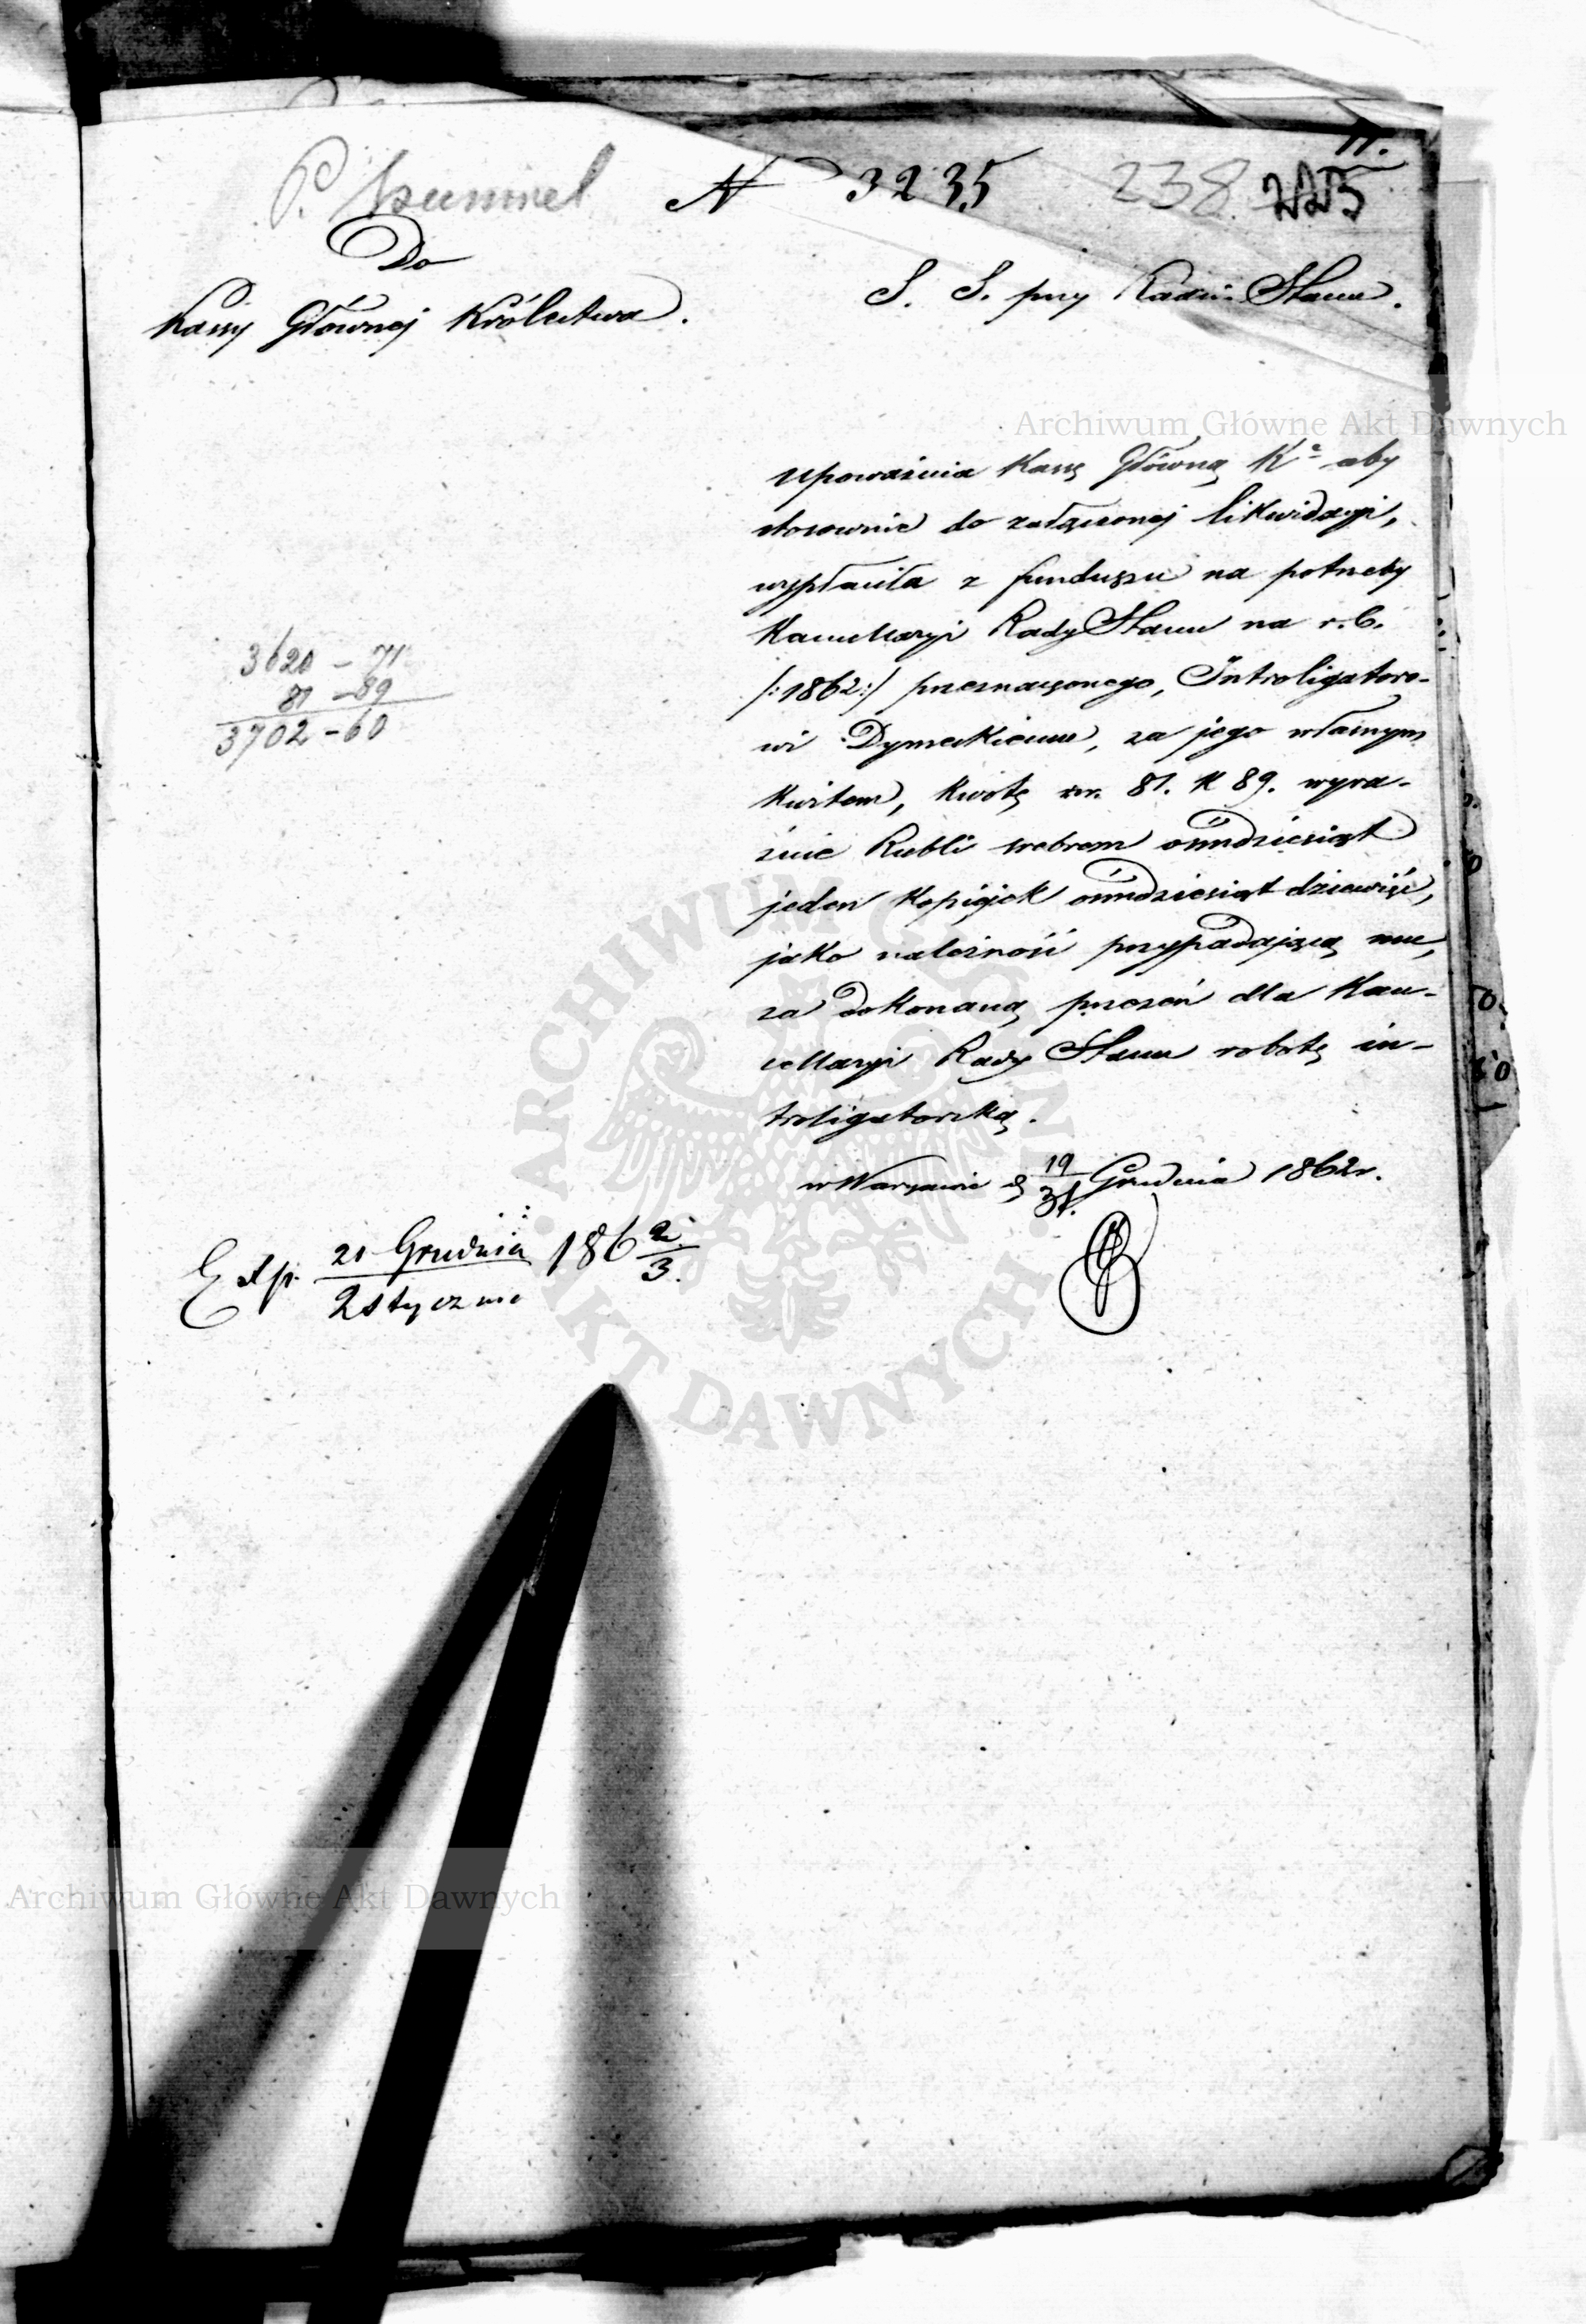 11.
P. Hummel N 3235 238 225
Do
Kassy Głównej Królestwa.
S. S. przy Radzie Stanu.
Archiwum Główne Akt Dawnych
upoważnia Kassę Główną K. aby
stosownie do załączonej likwidacyi,
wypłaciła z funduszu na potrzeby
Kancellaryi Rady Stanu na r. b.
/:1862:/ przeznaczonego, Introligatoro-
wi Dymeckiemu, za jego własnym
kwitem, kwotę rs. 81. k 89. wyra-
źnie Rubli srebrem ośmdziesiąt
jeden kopijek ośmdziesiąt dziewięć,
jako należność przypadającą mu,
za dokonaną przezeń dla Kan-
cellaryi Rady Stanu robotę in-
troligatorską.
w Warszawie d. 19/31. Grudnia 1862 r.
3620 - 71
81 - 89
3702 - 60
Exp. 21 Grudnia 1862
2 stycznia 3.
ARCHIWUM GŁÓWNE AKT DAWNYCH
Archiwum Główne Akt Dawnych